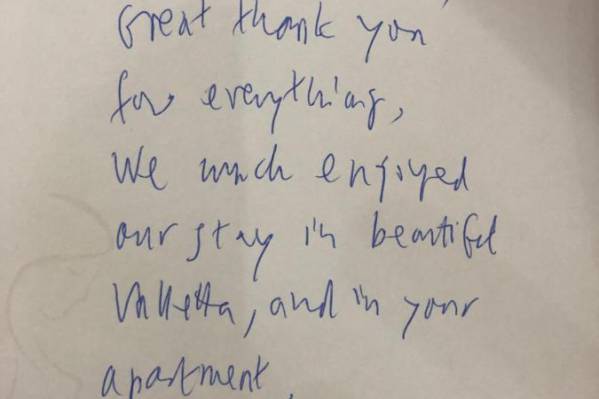 Great thank you
for everything,
We much enjoyed
our stay in beautiful
Valletta, and in your
apartment.